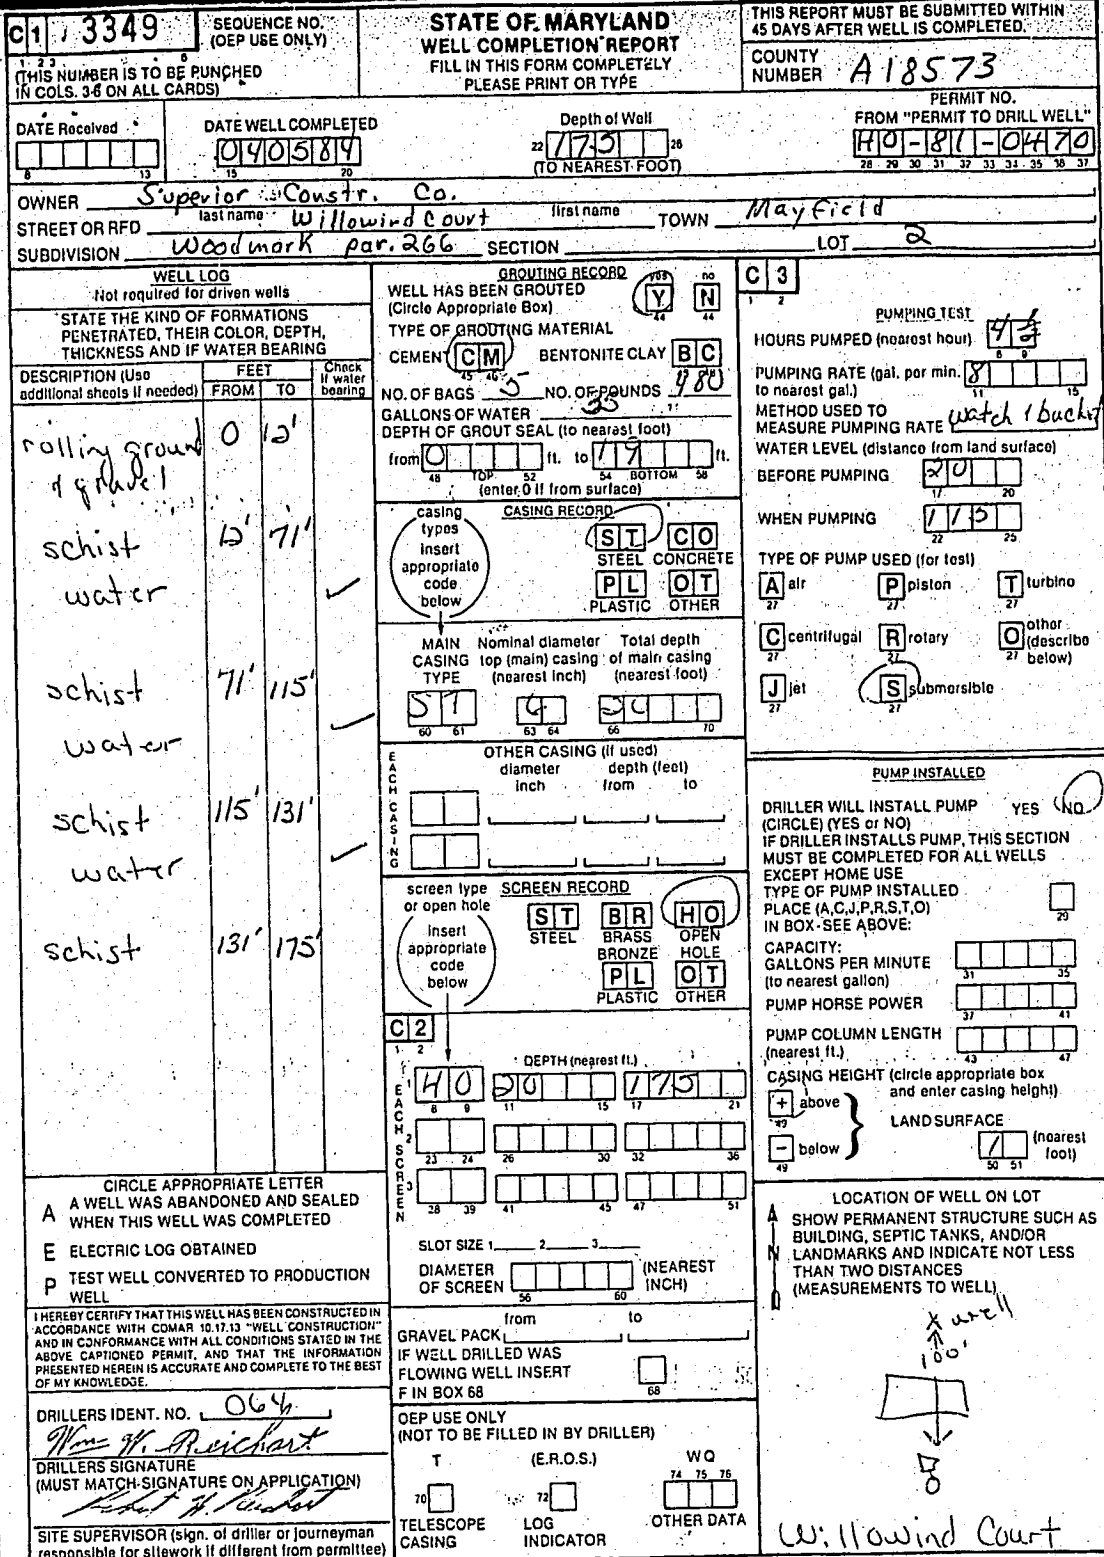 C 1 3349
SEQUENCE NO.
(OEP USE ONLY)
(THIS NUMBER IS TO BE PUNCHED
IN COLS. 3-6 ON ALL CARDS)
STATE OF MARYLAND
WELL COMPLETION REPORT
FILL IN THIS FORM COMPLETELY
PLEASE PRINT OR TYPE
THIS REPORT MUST BE SUBMITTED WITHIN
45 DAYS AFTER WELL IS COMPLETED.
COUNTY
NUMBER A 18573
DATE Received
8 13
DATE WELL COMPLETED
040584
15 20
Depth of Well
22 175 26
(TO NEAREST FOOT)
PERMIT NO.
FROM "PERMIT TO DRILL WELL"
HO-81-0470
28 29 30 31 32 33 34 35 36 37
OWNER Superior Constr. Co.
last name first name
STREET OR RFD Willowind Court TOWN Mayfield
SUBDIVISION Woodmark par. 266 SECTION LOT 2
WELL LOG
Not required for driven wells
STATE THE KIND OF FORMATIONS
PENETRATED, THEIR COLOR, DEPTH,
THICKNESS AND IF WATER BEARING
DESCRIPTION (Use
additional sheets if needed)
FEET
FROM TO
Check
if water
bearing
rolling ground 0 12'
& gravel
schist 12' 71'
water ✓
schist 71' 115'
water ✓
schist 115' 131'
water ✓
schist 131' 175'
CIRCLE APPROPRIATE LETTER
A A WELL WAS ABANDONED AND SEALED
WHEN THIS WELL WAS COMPLETED
E ELECTRIC LOG OBTAINED
P TEST WELL CONVERTED TO PRODUCTION
WELL
I HEREBY CERTIFY THAT THIS WELL HAS BEEN CONSTRUCTED IN
ACCORDANCE WITH COMAR 10.17.13 "WELL CONSTRUCTION"
AND IN CONFORMANCE WITH ALL CONDITIONS STATED IN THE
ABOVE CAPTIONED PERMIT, AND THAT THE INFORMATION
PRESENTED HEREIN IS ACCURATE AND COMPLETE TO THE BEST
OF MY KNOWLEDGE.
DRILLERS IDENT. NO.
Wm W. Reichart
DRILLERS SIGNATURE
(MUST MATCH SIGNATURE ON APPLICATION)
SITE SUPERVISOR (sign. of driller or journeyman
responsible for sitework if different from permittee)
GROUTING RECORD
yes no
WELL HAS BEEN GROUTED Y N
(Circle Appropriate Box) 44 44
TYPE OF GROUTING MATERIAL
CEMENT CM BENTONITE CLAY BC
45 46
NO. OF BAGS 5 NO. OF POUNDS 480
GALLONS OF WATER
DEPTH OF GROUT SEAL (to nearest foot)
from 0 ft. to 19 ft.
48 TOP 52 54 BOTTOM 58
(enter 0 if from surface)
casing
types
insert
appropriate
code
below
CASING RECORD
ST CO
STEEL CONCRETE
PL OT
PLASTIC OTHER
MAIN
CASING
TYPE
Nominal diameter
top (main) casing
(nearest inch)
Total depth
of main casing
(nearest foot)
ST 6 20
60 61 63 64 66 70
EACH CASING
OTHER CASING (if used)
diameter depth (feet)
inch from to
screen type
or open hole
insert
appropriate
code
below
SCREEN RECORD
ST BR HO
STEEL BRASS OPEN
BRONZE HOLE
PL OT
PLASTIC OTHER
C 2
1 2
DEPTH (nearest ft.)
EACH SCREEN
1 HO 20 175
8 9 11 15 17 21
2
23 24 26 30 32 36
3
38 39 41 45 47 51
SLOT SIZE 1 2 3
DIAMETER
OF SCREEN
(NEAREST
INCH)
56 60
from to
GRAVEL PACK
IF WELL DRILLED WAS
FLOWING WELL INSERT
F IN BOX 68
68
OEP USE ONLY
(NOT TO BE FILLED IN BY DRILLER)
T (E.R.O.S.) WQ
74 75 76
70 72
TELESCOPE
CASING
LOG
INDICATOR
OTHER DATA
C 3
1 2
PUMPING TEST
HOURS PUMPED (nearest hour)
8 9
PUMPING RATE (gal. per min. 8
to nearest gal.) 11 15
METHOD USED TO
MEASURE PUMPING RATE watch & bucket
WATER LEVEL (distance from land surface)
BEFORE PUMPING 20
17 20
WHEN PUMPING 115
22 25
TYPE OF PUMP USED (for test)
A air P piston T turbine
27 27 27
C centrifugal R rotary O other
(describe
below)
27 27 27
J jet S submersible
27 27
PUMP INSTALLED
DRILLER WILL INSTALL PUMP YES NO
(CIRCLE) (YES or NO)
IF DRILLER INSTALLS PUMP, THIS SECTION
MUST BE COMPLETED FOR ALL WELLS
EXCEPT HOME USE
TYPE OF PUMP INSTALLED
PLACE (A,C,J,P,R,S,T,O) 29
IN BOX - SEE ABOVE:
CAPACITY:
GALLONS PER MINUTE
(to nearest gallon) 31 35
PUMP HORSE POWER
37 41
PUMP COLUMN LENGTH
(nearest ft.) 43 47
CASING HEIGHT (circle appropriate box
and enter casing height)
+ above
49
LAND SURFACE
- below
49
1 (nearest
foot)
50 51
LOCATION OF WELL ON LOT
SHOW PERMANENT STRUCTURE SUCH AS
BUILDING, SEPTIC TANKS, AND/OR
LANDMARKS AND INDICATE NOT LESS
THAN TWO DISTANCES
(MEASUREMENTS TO WELL)
N
X well
100'
Willowind Court